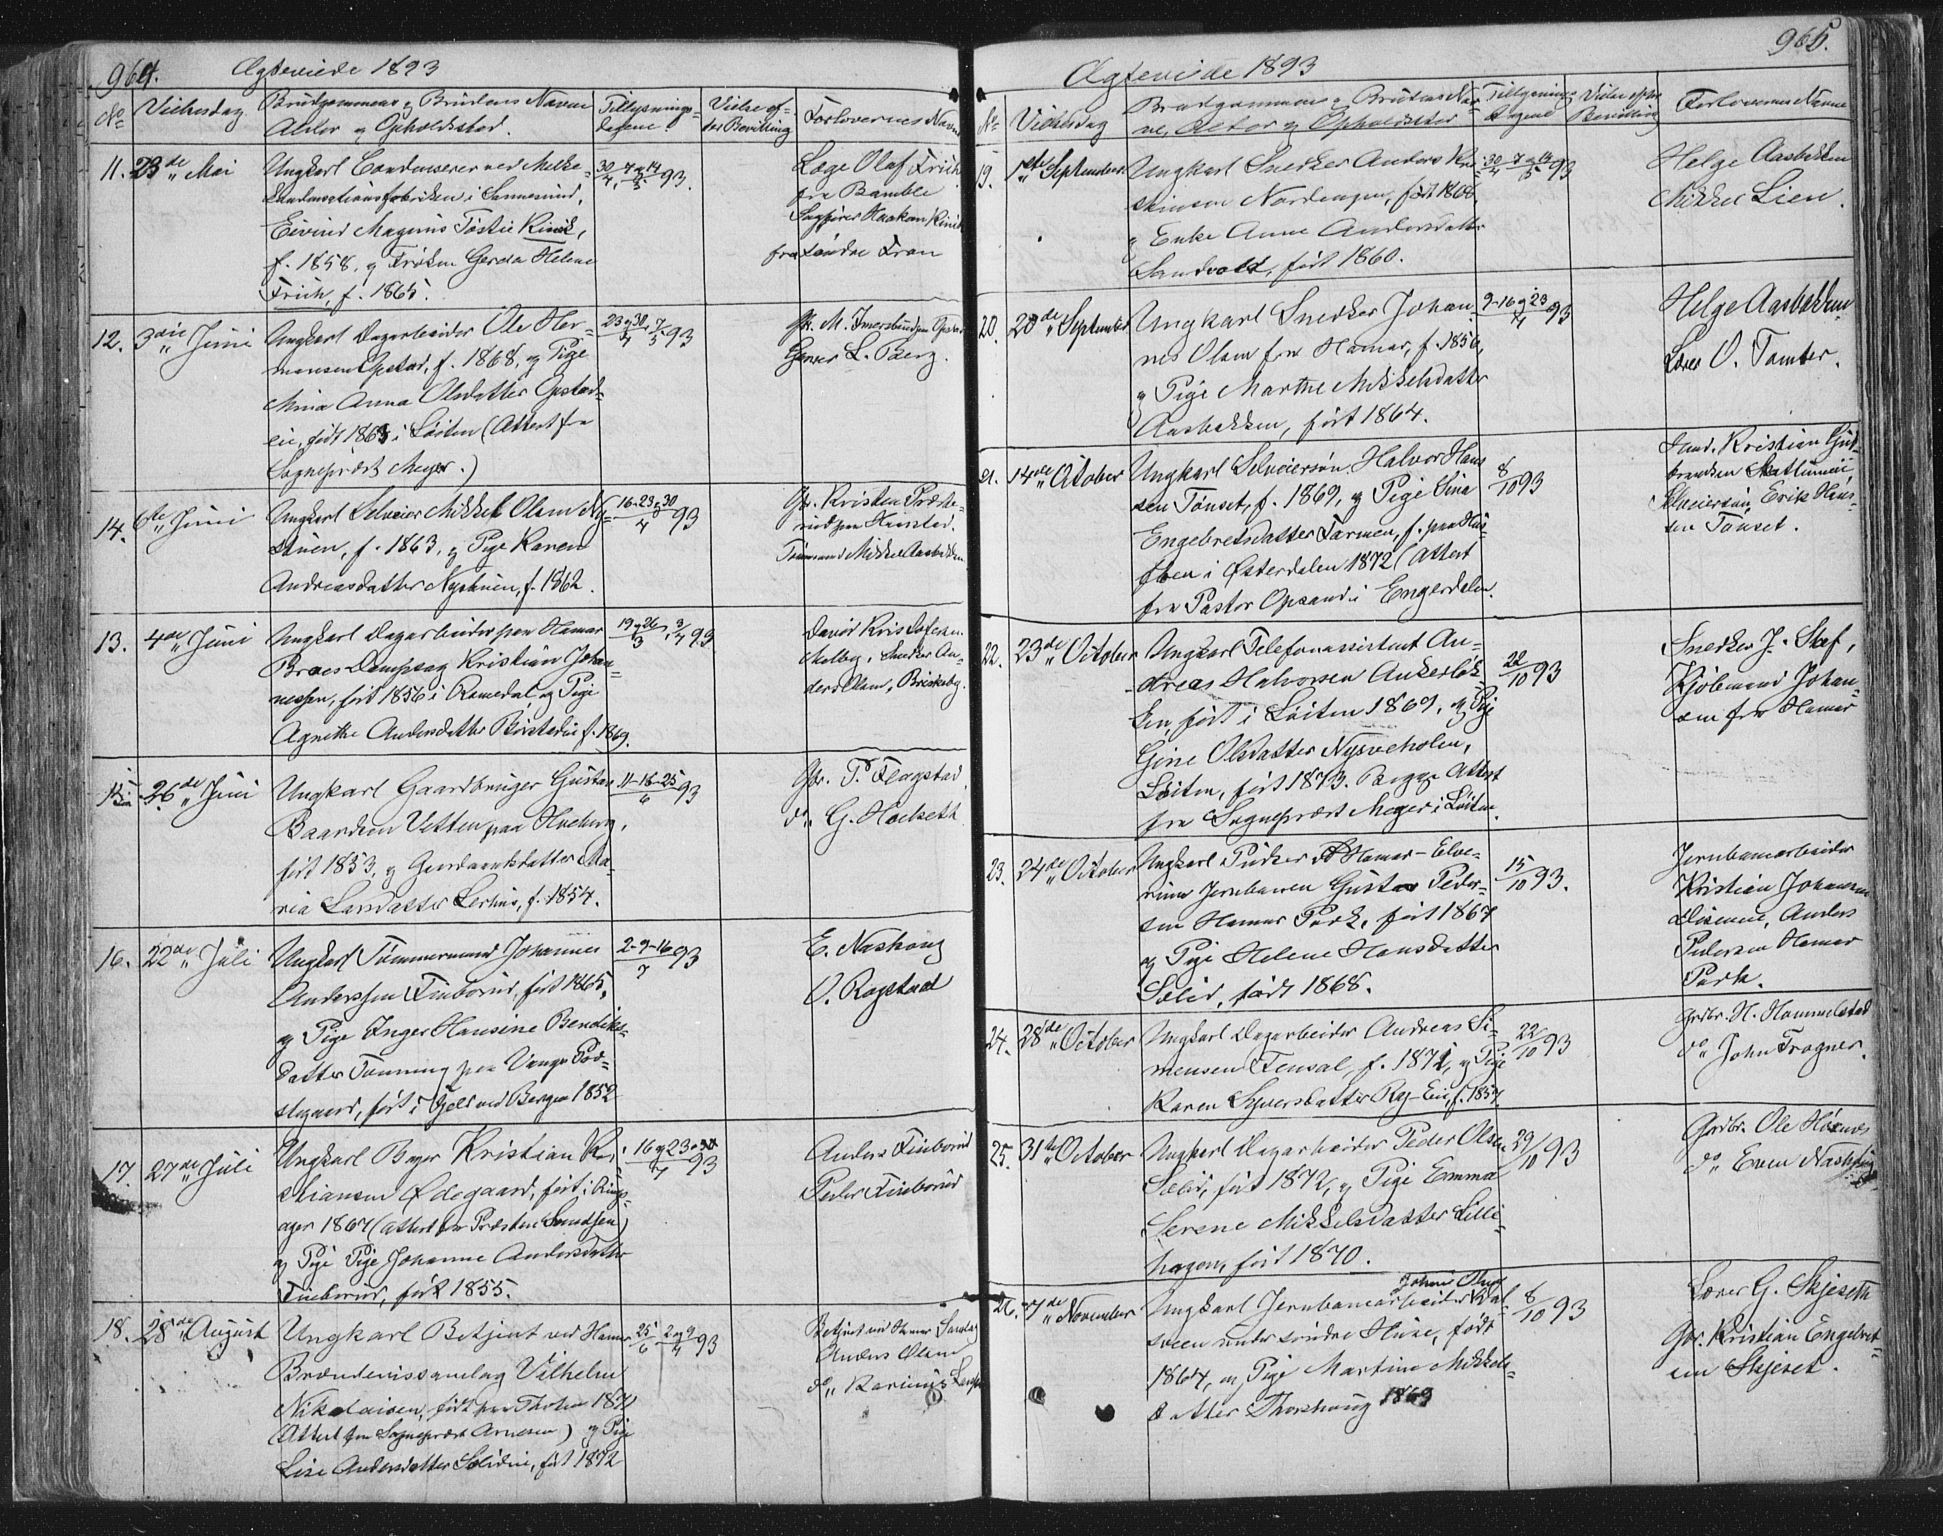 964.
Ægteviede 1893
No
Vielsesdag
Brudgommens og Brudens Navne
Alder og Opholdssted.
Tillysnings-
dagene.
Vielse ef-
ter Bevilling
Forlovernes Navne
11. 23de Mai
Ungkarl Condenserer ved Melke-
kondensationsfabriken i Sannesund,
Eivind Magnus Tostie Kinck,
f. 1858, og Frøken Gerda Helene
Frich, f. 1865.
30/4, 7 og 14/5 93.
Læge Olaf Frich
fra Bamble
Sagfører Haakon Kinck
fra Søndre Fron
12. 3die Juni
Ungkarl Dagarbeider Ole Her-
mansen Opstad, f. 1868, og Pige
Mina Anna Olsdatter Opstad-
eie, født 1863 i Løiten (Attest fra
Sogneprest Meyer.)
23 og 30/4, 7/5 93
Gr. M. Imerslund paa Opstad
Gaver L. Berg.
14. 6te Juni
Ungkarl Selveier Mikkel Olsen Ny-
stuen, f. 1863, og Pige Karen
Andreasdatter Nystuen, f. 1862.
16-23 og 30/4 93
Gr. Kristen Præste-
rud paa Hamstad.
Tømmermand Mikkel Aasbekken
13. 4de Juni
Ungkarl Dagarbeider paa Hamar
Bræs Dampsag Kristian Johan-
nessen, født 1856 i Romedal og Pige
Agnethe Andersdatter Børstadeie f. 1869.
19 og 26/3, 3/4 93
David Kristofersen
Molberg, Snedker An-
ders Olsen, Briskeby.
15. 26de Juni
Ungkarl Gaardbruger Gustav
Baardsen Vetten paa Hoeberg,
født 1853, og Gaardmandsdatter Ma-
ria Larsdatter Lerhus, f. 1854.
11-16-25/6 93
Gbr. P. Flagstad
do. G. Hoelseth
16. 22de Juli
Ungkarl Tømmermand Johannes
Anderssen Finborud, født 1865,
og Pige Inger Hansine Bendiks-
datter Tønning paa Vangs Præ-
stegaard, født i Gjeld ved Bergen 1852
2-9-16/7 93
E. Nashoug
O. Rogstad
17. 27de Juli
Ungkarl Bager Kristian Kri-
stiansen Ødegaard, født i Rings-
ager 1867 (Attest fra Præsten Smidtsen)
og Pige Pige Johanne Andersdatter
Finborud, født 1855.
16 og 23 og 30/7 93
Anders Finborud
Peder Finborud
18. 28de August
Ungkarl Betjent ved Hamar
Brændevinssamlag Vilhelm
Nikolaisen, født paa Thoten 1870
(Attest fra Sogneprest Arnesen) og Pige
Lise Andersdatter Solideie, født 1872
25/6 2 og 9/7 93
Betjent ved Hamar Samlag
Anders Olsen
do. Karinus
965.
Ægteviede 1893
No
Vielsesdag
Brudgommens og Brudens Nav-
ne, Alder og Opholdssted
Tillysnings-
dagene
Vielse efter
Bevilling
Forlovernes Navne
19. 1ste September
Ungkarl Snedker Anders Kri-
stiansen Nordengen, født 1868
og Enke Anne Andersdatter
Sandvold, født 1860.
30/4 7 og 14/5 93
Helge Aasbekken
Mikkel Lien.
20. 20de September
Ungkarl Snedker Johan-
nes Olsen fra Hamar, f. 1856,
og Pige Marthe Mikkelsdatter
Aasbekken, født 1864.
9-16 og 23/4 93
Helge Aasbekken
Lærer O. Tomter.
21. 14de October
Ungkarl Selveiersøn Halvor Han-
sen Tønset, f. 1869, og Pige Sina
Engebretsdatter Farmen, f. paa Hus-
floen i Østerdalen 1872 (Attest
fra Pastor Opsand i Engerdalen.
8/10 93
Kristian Gud-
brandsen
Selveiersøn Erik Han-
sen Tønset.
22. 23de October
Ungkarl Telefonassistent An-
dreas Halvorsen Ankerløk-
ken, født i Løiten 1869, og Pige
Gine Olsdatter Nysveholen,
Løiten, født 1873. Begge Attest
fra Sogneprest Meyer i Løiten.
22/10 93
Snedker J. Skef,
Kjøbmand Johan-
sen fra Hamar
23. 24de October
Ungkarl Pudser ved Hamar-Elve-
rums Jernbanen Gustav Peder-
sen Hamar Park, født 1867
og Pige Helene Hansdatter
Solid, født 1868.
15/10 93.
Jernbanearbeider
Kristian Johansen
Disenene, Anders
Pedersen Hamar
Park.
24. 28de October
Ungkarl Dagarbeider Andreas Si-
mensen Finsal, f. 1871, og Pige
Karen Syversdatter Røj-Eie, f. 1857.
22/10 93
Grdbr. H. Hommelstad
do. John Frogner.
25. 31te October
Ungkarl Dagarbeider Peder Olsen
Solid, født 1872, og Pige Emma
Serene Mikkelsdatter Lille-
hagen, født 1870.
29/10 93
Grdbr. Ole Hoenes
do. Even Nashoug
26. 7de November
Johan Olsen
Ungkarl Jernbanearbeider Kval-
sveen under søndre Huse, født
1864, og Pige Martine Mikkels-
datter Thorshoug 1863
8/10 93
Lærer G. Skjeseth
Gbr. Kristian Engebret-
sen Skjeset.